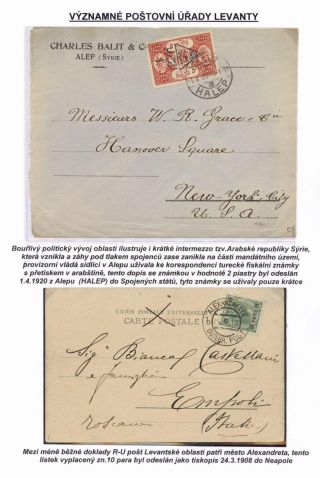 VÝZNAMNÉ POŠTOVNÍ ÚŘADY LEVANTY
CHARLES BALIT & C
ALEP (SYRIE)
HALEP
Messieurs W. R. Grace & Co
Hanover Square
New York City
U. S. A.
Bouřlivý politický vývoj oblasti ilustruje i krátké intermezzo tzv.Arabské republiky Sýrie,
která vznikla a záhy pod tlakem spojenců zase zanikla na části mandátního území,
provizorní vládá sídlící v Alepu užívala ke korespondenci turecké fiskální známky
s přetiskem v arabštině, tento dopis se známkou v hodnotě 2 piastry byl odeslán
1.4.1920 z Alepu (HALEP) do Spojených států, tyto známky se užívaly pouze krátce
UNION POSTALE UNIVERSELLE
Sig
Bianca Castellani
e famiglia
Empoli
(Italie)
Toscana
Mezi méně běžné doklady R-U pošt Levantské oblasti patří město Alexandreta, tento
lístek vyplacený zn.10 para byl odeslán jako tiskopis 24.3.1908 do Neapole